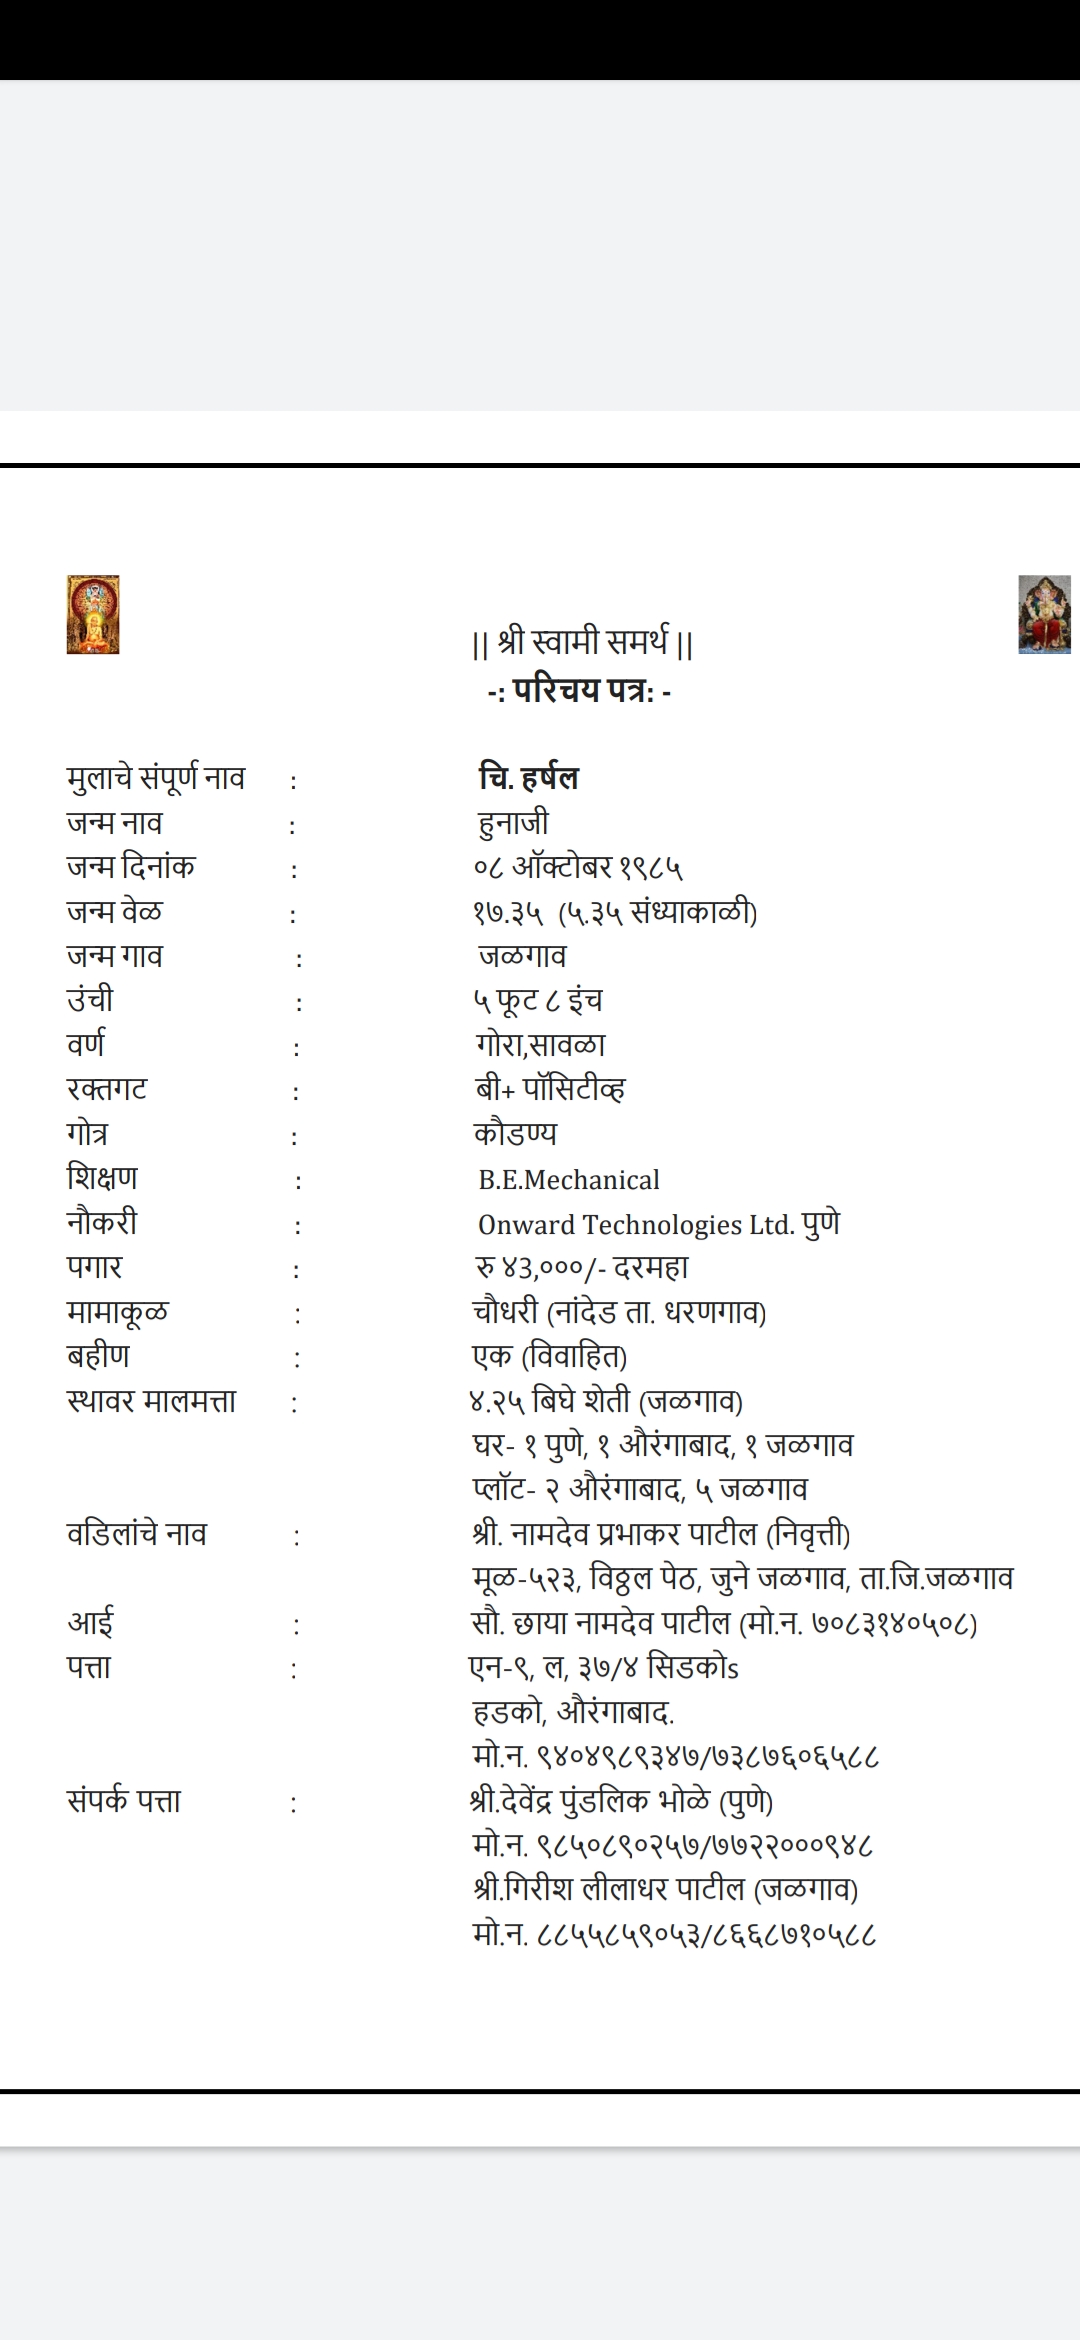 || श्री स्वामी समर्थ ||
-: परिचय पत्र: -
मुलाचे संपूर्ण नाव : चि. हर्षल
जन्म नाव : हुनाजी
जन्म दिनांक : ०८ ऑक्टोबर १९८५
जन्म वेळ : १७.३५ (५.३५ संध्याकाळी)
जन्म गाव : जळगाव
उंची : ५ फूट ८ इंच
वर्ण : गोरा,सावळा
रक्तगट : बी+ पॉसिटीव्ह
गोत्र : कौडण्य
शिक्षण : B.E.Mechanical
नौकरी : Onward Technologies Ltd. पुणे
पगार : रु ४3,०००/- दरमहा
मामाकूळ : चौधरी (नांदेड ता. धरणगाव)
बहीण : एक (विवाहित)
स्थावर मालमत्ता : ४.२५ बिघे शेती (जळगाव)
घर- १ पुणे, १ औरंगाबाद, १ जळगाव
प्लॉट- २ औरंगाबाद, ५ जळगाव
वडिलांचे नाव : श्री. नामदेव प्रभाकर पाटील (निवृत्ती)
मूळ-५२३, विठ्ठल पेठ, जुने जळगाव, ता.जि.जळगाव
आई : सौ. छाया नामदेव पाटील (मो.न. ७०८३१४०५०८)
पत्ता : एन-९, ल, ३७/४ सिडकोs
हडको, औरंगाबाद.
मो.न. ९४०४९८९३४७/७३८७६०६५८८
संपर्क पत्ता : श्री.देवेंद्र पुंडलिक भोळे (पुणे)
मो.न. ९८५०८९०२५७/७७२२०००९४८
श्री.गिरीश लीलाधर पाटील (जळगाव)
मो.न. ८८५५८५९०५३/८६६८७१०५८८